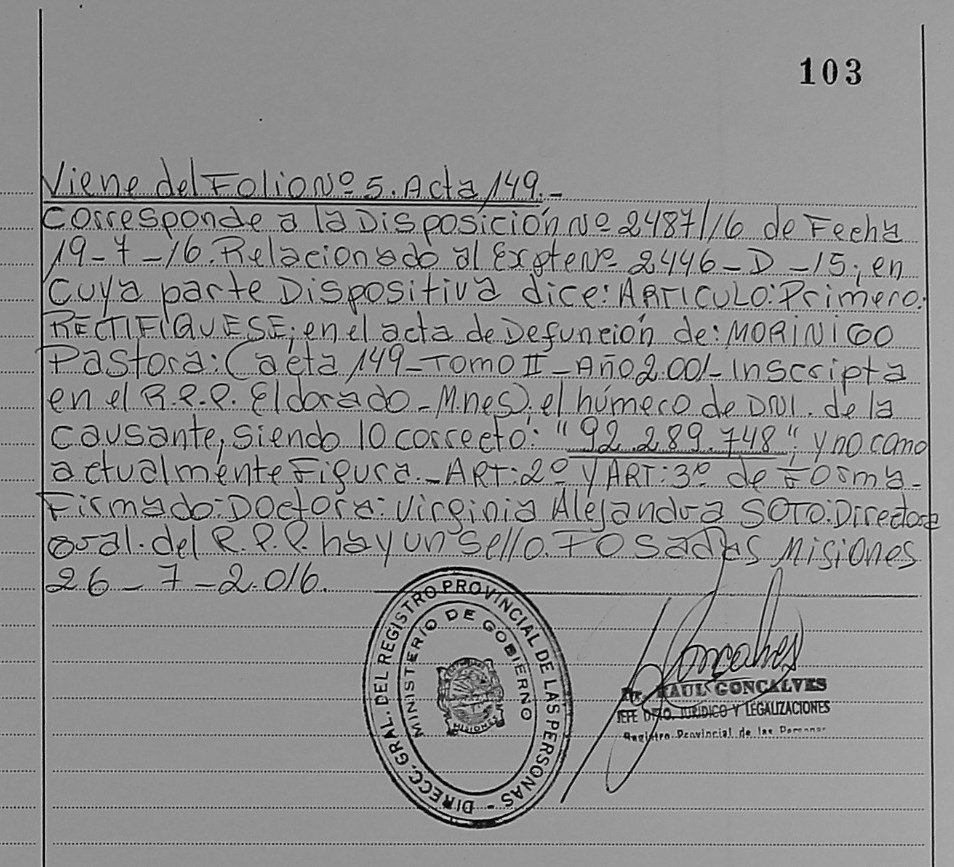 103
Viene del Folio Nº 5. Acta 149.-
Corresponde a la Disposición Nº 2487/16 de Fecha
19-7-16. Relacionado al Expte Nº 2446-D-15; en
cuya parte Dispositiva dice: ARTICULO: Primero:
RECTIFIQUESE; en el acta de Defunción de: MORINIGO
Pastora: (acta 149-Tomo II-Año 2.001-Inscripta
en el R.P.P. Eldorado-Mnes). el número de DNI. de la
causante, siendo lo correcto: "92.289.748"; y no como
actualmente Figura.-ART: 2º Y ART: 3º de Forma-
Firmado: Doctora: Virginia Alejandra SOTO: Directora
Gral. del R.P.P. hay un sello. POSADAS Misiones
26-7-2.016.
DIRECC. GRAL. DEL REGISTRO PROVINCIAL DE LAS PERSONAS -
MINISTERIO DE GOBIERNO
MISIONES
RAUL GONCALVES
JEFE DPTO. JURIDICO Y LEGALIZACIONES
Registro Provincial de las Personas